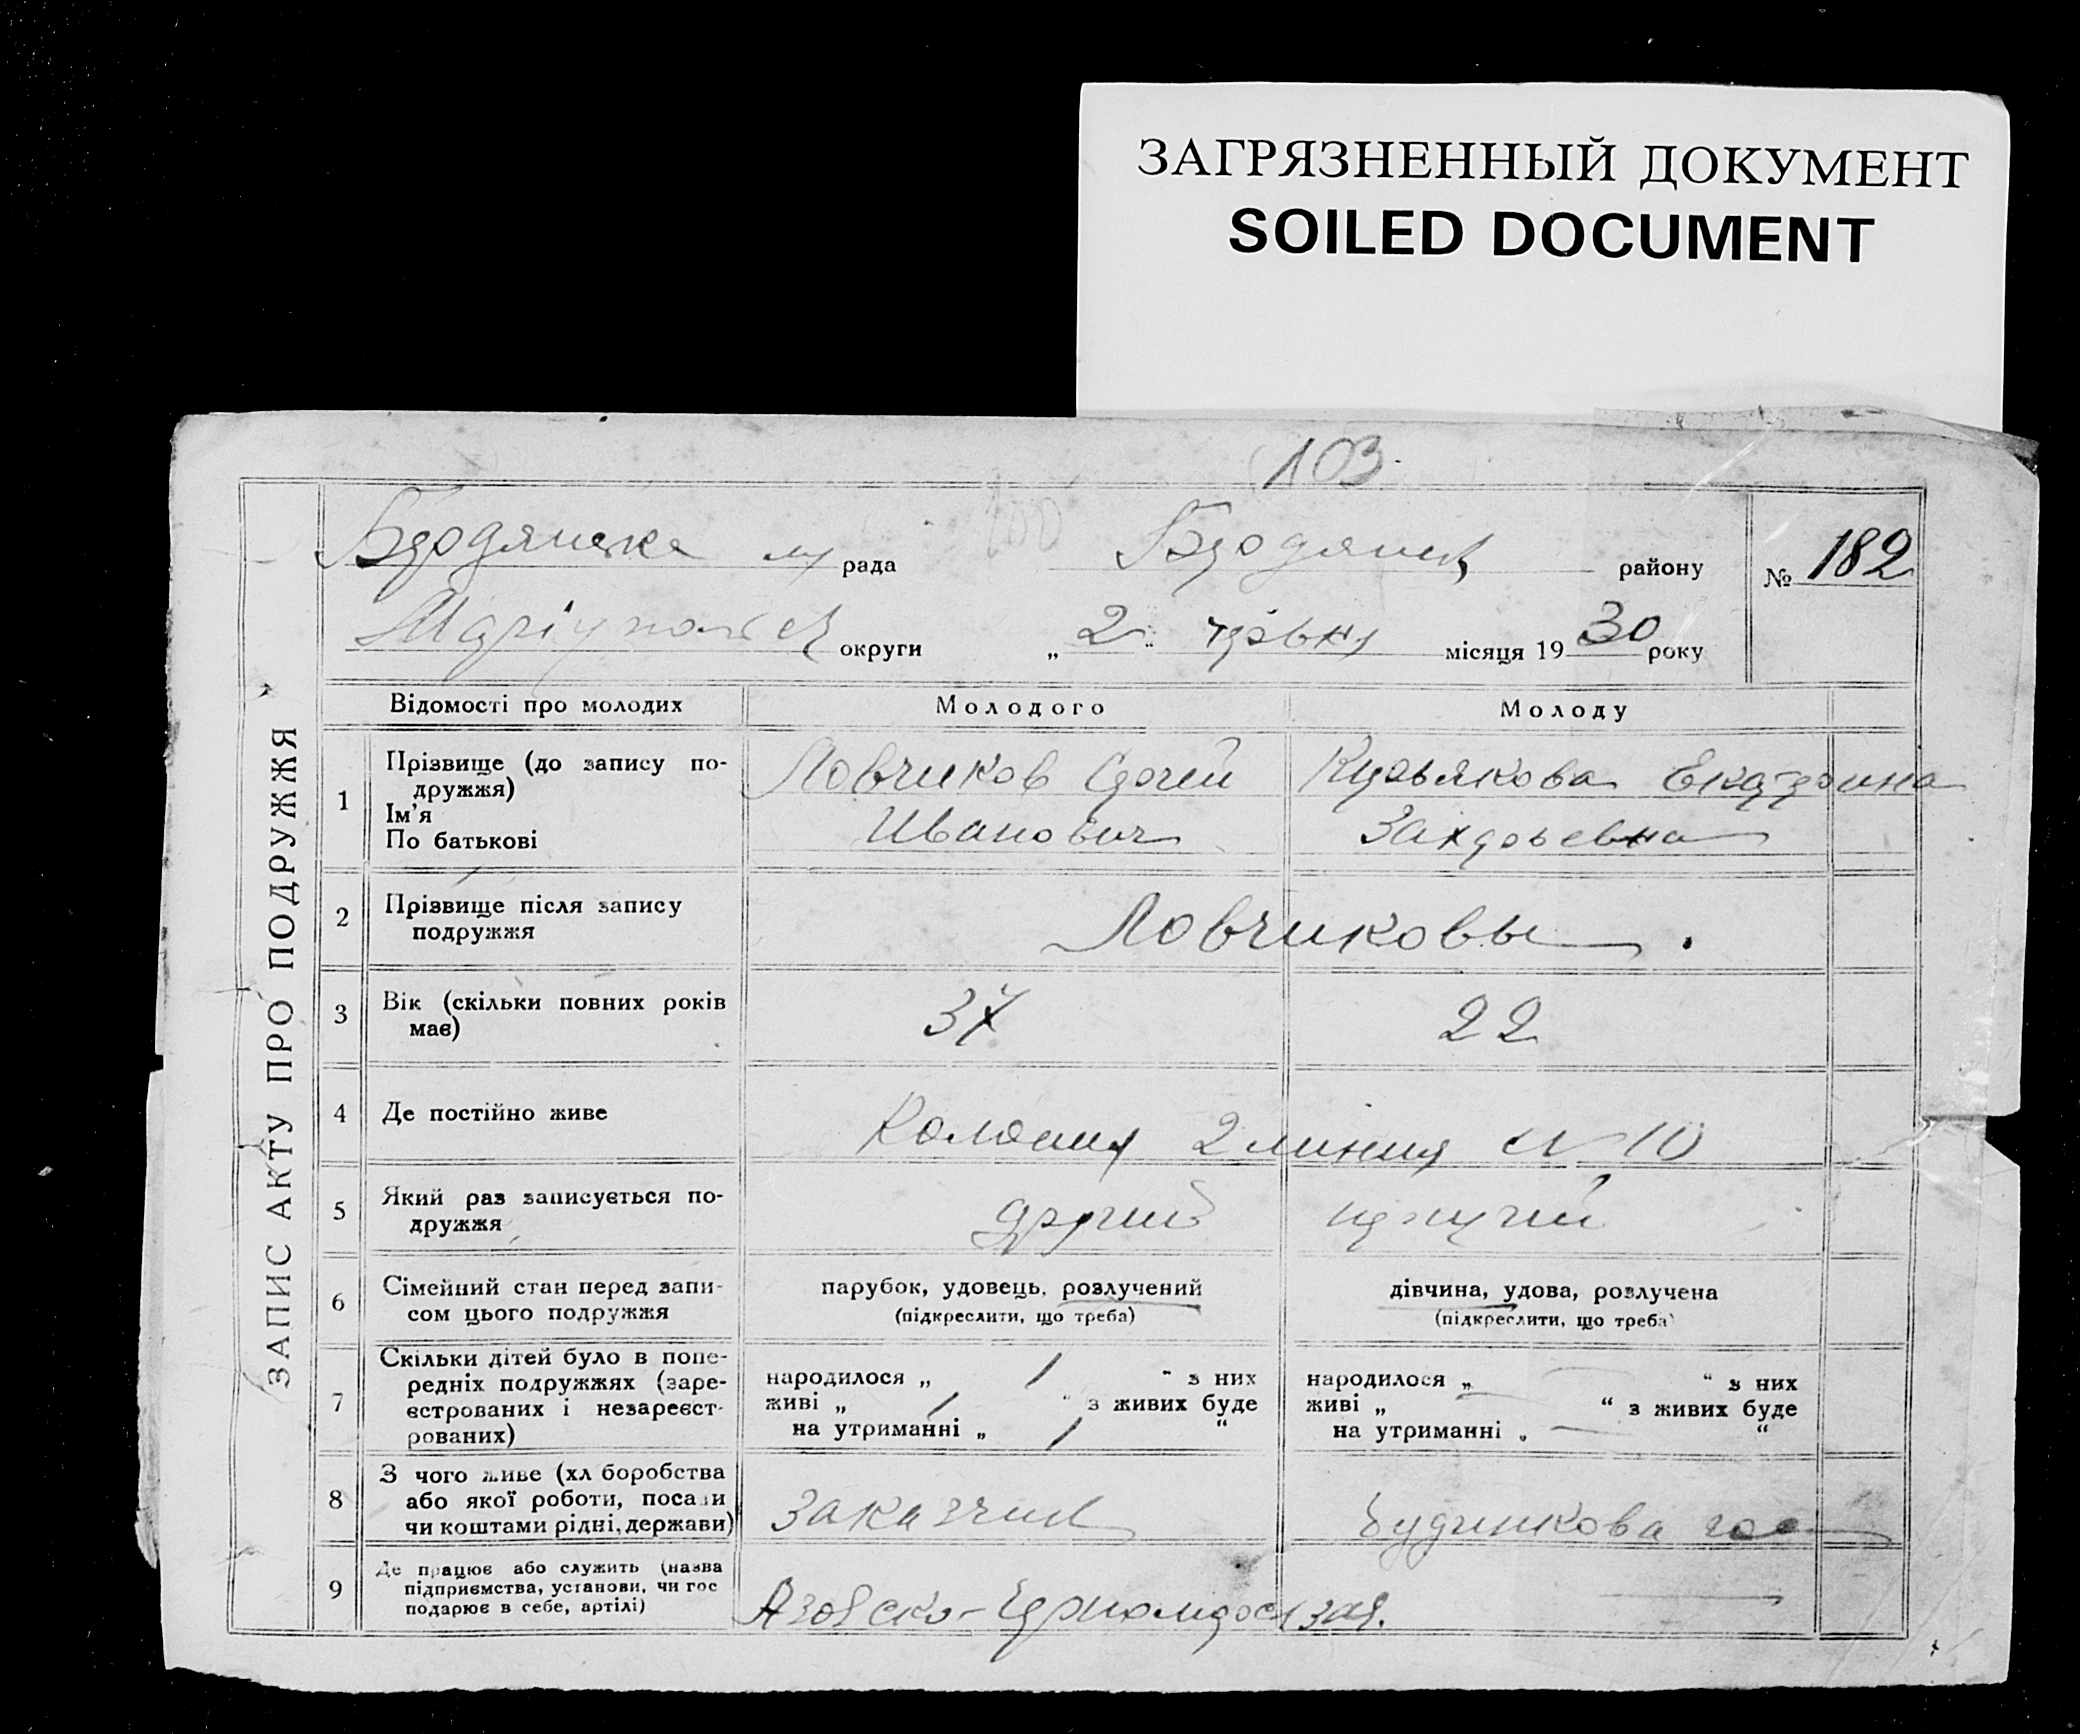 ЗАГРЯЗНЕННЫЙ ДОКУМЕНТ
SOILED DOCUMENT
103
ЗАПИС АКТУ ПРО ПОДРУЖЖЯ
Бердянська м рада Бердянськ району № 182
Маріупольськ округи „2“ травня місяця 1930 року
Відомості про молодих Молодого Молоду
1 Прізвище (до запису по-
дружжя)
Ім'я
По батькові
Ловчиков Сергей
Иванович
Екатерина
Захарьевна
2 Прізвище після запису
подружжя
Ловчиковы.
3 Вік (скільки повних років
має)
37 22
4 Де постійно живе
Колония 2 линия № 10
5 Який раз записується по-
дружжя
другий перший
6 Сімейний стан перед запи-
сом цього подружжя
парубок, удовець, розлучений
(підкреслити, що треба)
дівчина, удова, розлучена
(підкреслити, що треба)
7 Скільки дітей було в попе-
редніх подружжях (заре-
єстрованих і незареєст-
рованих)
народилося „ 1 “ з них
живі „ 1 “ з живих буде
на утриманні „ 1 “
народилося „ — “ з них
живі „ — “ з живих буде
на утриманні „ — “
8 З чого живе (хліборобства
або якої роботи, посади
чи коштами рідні, держави)
будинкова гос
9 Де працює або служить (назва
підприємства, установи, чи гос
подарює в себе, артілі)
Азовско-Черномор зав. —